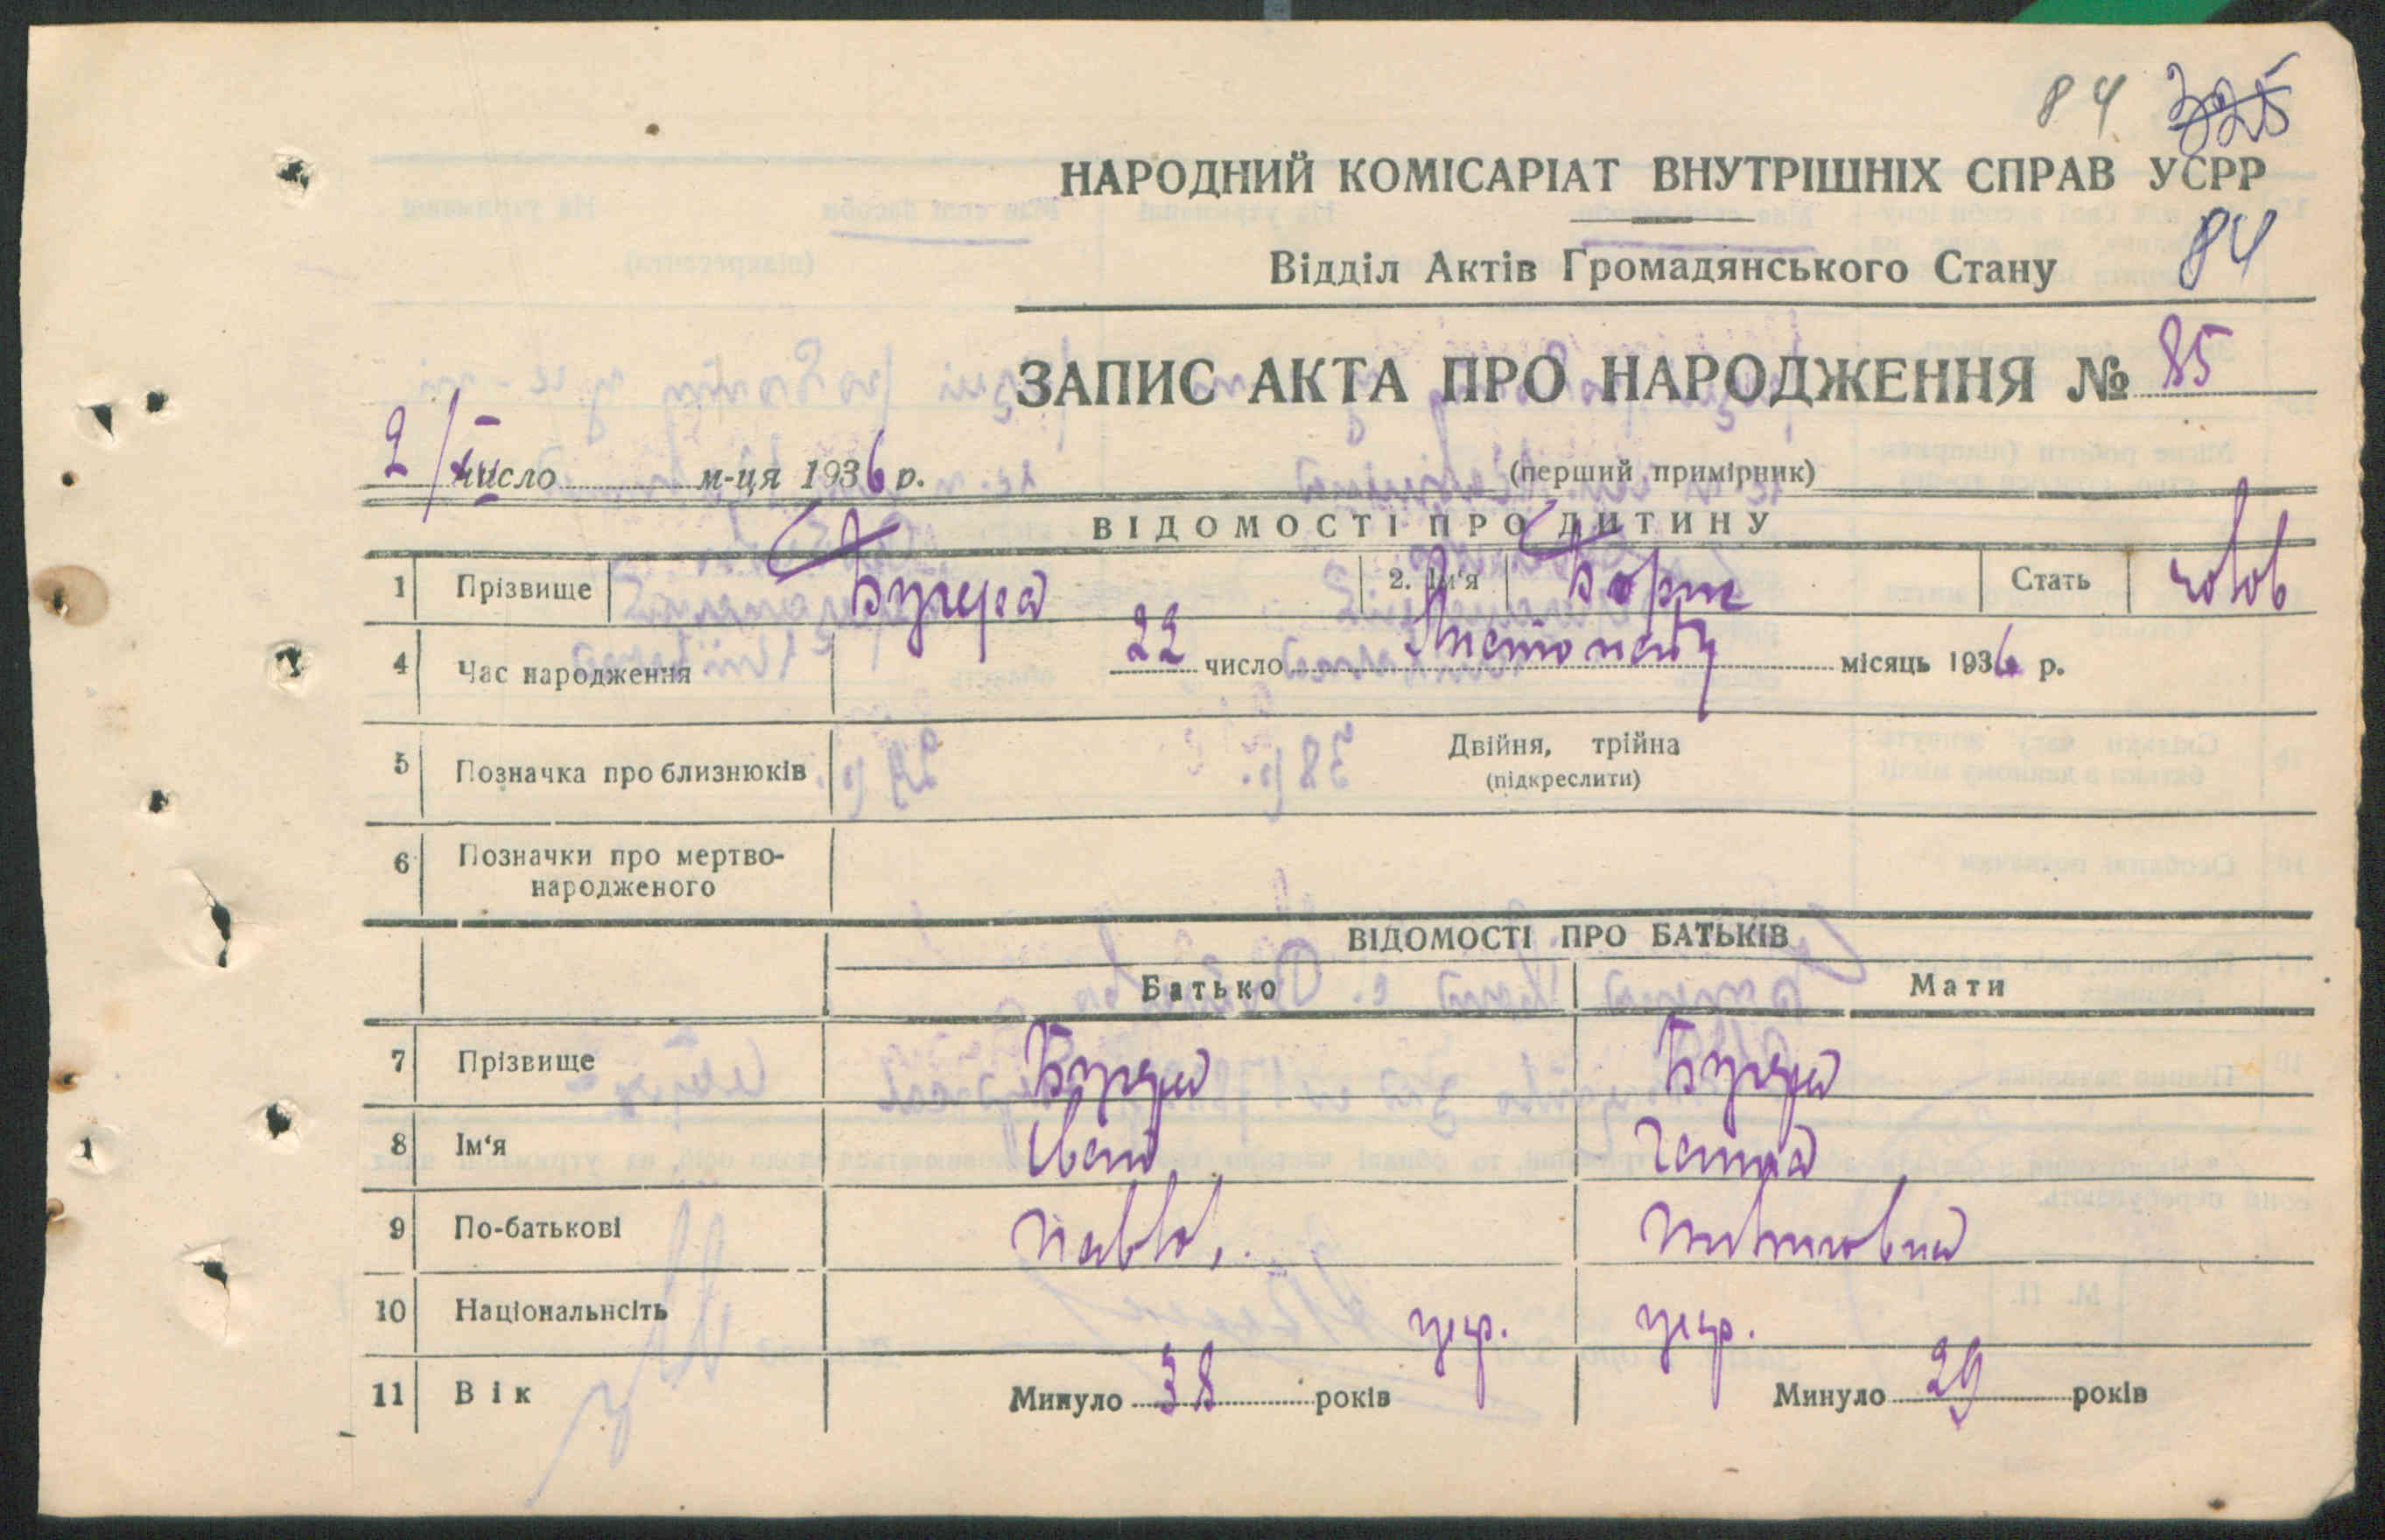 84 325
НАРОДНИЙ КОМІСАРІАТ ВНУТРІШНІХ СПРАВ УСРР
Відділ Актів Громадянського Стану 84
ЗАПИС АКТА ПРО НАРОДЖЕННЯ № 85
2/ число м-ця 1936 р. (перший примірник)
ВІДОМОСТІ ПРО ДИТИНУ
1 Прізвище Бугера 2. Ім'я Борис Стать чолов
4 Час народження 22 число Листопаду місяць 1936 р.
5 Позначка про близнюків Двійня, трійна
(підкреслити)
6 Позначки про мертво-
народженого
ВІДОМОСТІ ПРО БАТЬКІВ
Батько Мати
7 Прізвище Бугера Бугера
8 Ім'я Іван
9 По-батькові Павло.
10 Національнсіть укр. укр.
11 Вік Минуло 38 років Минуло 29 років